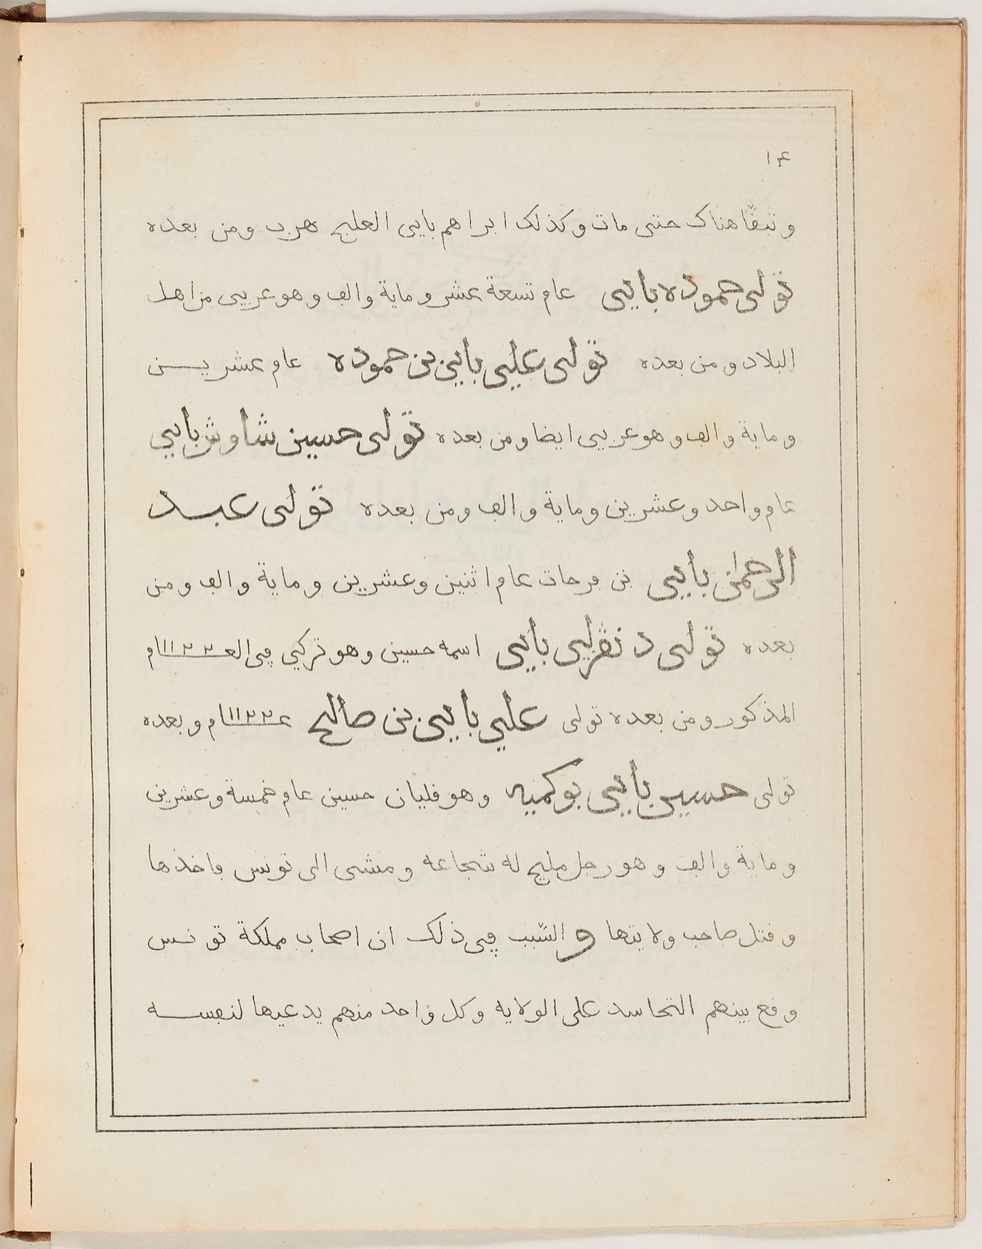 ١٤
وتبقا هناك حتى مات وكذلك ابراهم بايى العلج هرب ومن بعده
تولى حموده بايى عام تسعة عشر وماية والف وهو عربى من اهل
البلاد ومن بعده تولى على بايى بن حموده عام عشريـــن
وماية والف وهو عربى ايضا ومن بعده تولى حسين شاوش بايى
عام واحد وعشرين وماية والف ومن بعده تولى عبـد
الرحمان بايى بن فرحات عام اثنين وعشرين وماية والف ومن
بعده تولى دنڨزلى بايى اسمه حسين وهو تركي في العـ١١٢٢ـام
المذكور ومن بعده تولى على بايى بن صالح عـ١١٢٢ـام وبعده
تولى حسين بايى بوكميه وهو قليان حسين عام خمسة وعشرين
وماية والف وهو رجل مليح له شجاعه ومشى الى تونس فاخذها
وقتل صاحب ولايتها والسّبب في ذلك ان اصحاب مملكة تونس
وقع بينهم التحاسد على الولايه وكل واحد منهم يدعيها لنفســه